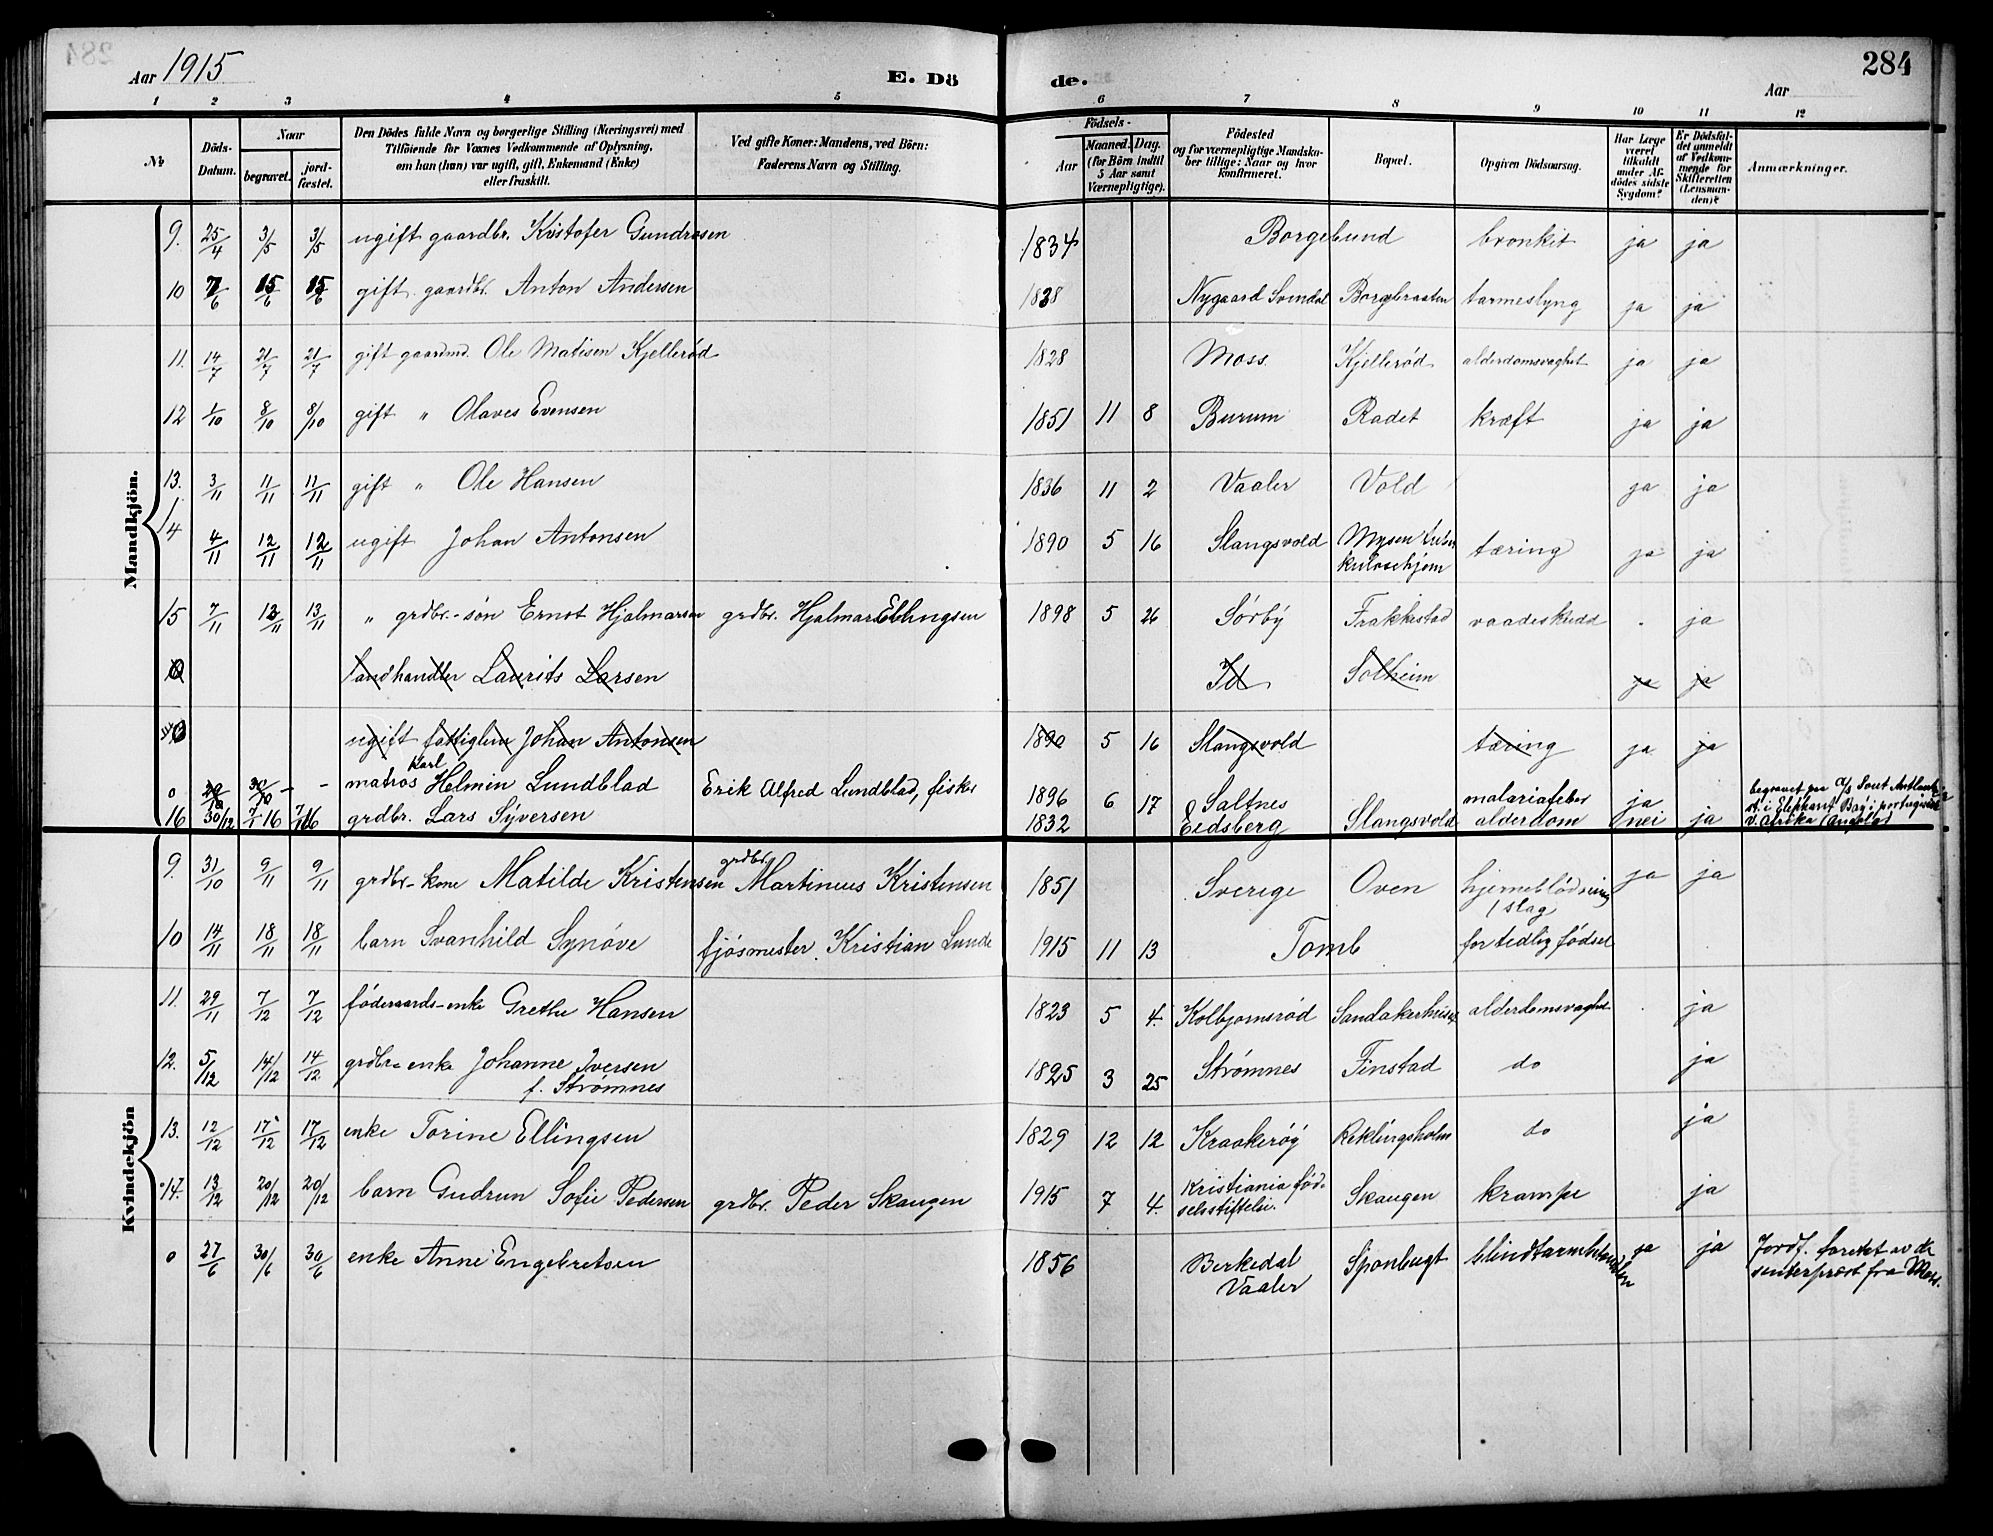 284
Aar 1915
E. Dö de.
Aar
1 2 3 4 5 6 7 8 9 10 11 12
No
Döds-Datum.
Naar
begravet.
jord-fæstet.
Den Dödes fulde Navn og borgerlige Stilling (Næringsvei) med
Tilföiende for Voxnes Vedkommende af Oplysning,
om hun (han) var ugift, gift, Enkemand (Enke)
eller fraskilt.
Ved gifte Koner: Mandens, ved Börn:
Faderens Navn og Stilling.
Födsels-
Aar
Maaned. Dag.
(for Börn indtil
5 Aar samt
Værnepligtige).
Födested
og for værnepligtige Mandska-
ber tillige: Naar og hvor
konfirmeret.
Bopæl.
Opgiven Dödsaarsag.
Har Læge
været
tilkaldt
under Af-
dödes sidste
Sygdom?
Er Dödsfal-
det anmeldt
af Vedkom-
mende for
Skifteretten
(Lensman-
den)?
Anmærkninger.
Mandkjön.
9. 25/4 3/5 3/5 ugift gaardbr. Kristofer Gundrosen 1834 Borgebund bronkit ja ja
10 7/6 15/6 15/6 gift gaardbr. Anton Andersen 1838 Nygaard Svindal Borgebraaten tarmeslyng ja ja
11. 14/7 21/7 21/7 gift gaardmd. Ole Matisen Kjellerød 1828 Moss Kjellerød alderdomsvaghet ja ja
12 1/10 8/10 8/10 gift " Olaves Evensen 1851 11 8 Burum Radet kræft ja ja
13. 3/11 11/11 11/11 gift " Ole Hansen 1836 11 2 Vaaler Vold ja ja
14 4/11 12/11 12/11 ugift Johan Antonsen 1890 5 16 Slangsvold Mysen tuber
kulosehjem tæring ja ja
15 7/11 13/11 13/11 " grdbr.-søn Ernst Hjalmarsen grdbr. Hjalmar Ellingsen 1898 5 26 Sørby Frakkestad vaadeskudd . ja
landhandler Laurits Larsen Id Solheim ja ja
ugift fattiglem Johan Antonsen 1890 5 16 Slangsvold tæring ja ja
Karl
0 29/10 30/10 - - matros Helmin Lundblad Erik Alfred Lundblad, fisker 1896 6 17 Saltnes malariafeber ja begravet paa
st. i Elephant Bay i portugisisk
V. Afrika (Angola)
16 30/12 7/1 16 7/1 16 grdbr. Lars Syversen 1832 Eidsberg Slangsvold alderdom nei ja
Kvindekjön
9. 31/10 9/11 9/11 grdbr.-kone Matilde Kristensen grdbr. Martinius Kristensen 1851 Sverige Oven hjerneblødning
/ slag ja ja
10 14/11 18/11 18/11 barn Svanhild Synøve fjøsmester. Kristian Lunde 1915 11 13 Tomb for tidlig fødsel
11. 29/11 7/12 7/12 føderaads-enke Grethe Hansen 1823 5 4. Kolbjørnsrød Sandakerhuset alderdomsvaghet . ja
12. 5/12 14/12 14/12 grdbr- enke Johanne Iversen
f. Strømnes 1825 3 25 Strømnes Finstad do ja
13. 12/12 17/12 17/12 enke Torine Ellingsen 1829 12 12 Kraakerøy Reklingsholm do ja
14. 13/12 20/12 20/12 barn Gudrun Sofie Pedersen grdbr. Peder Skaugen 1915 7 4. Kristiania fød-
selsstiftelse. Skaugen krampe ja
0 27/6 30/6 30/6 enke Anne Engebretsen 1856 Birkedal
Vaaler Sponbugt ja ja Jordf. foretat av
fra Moss.